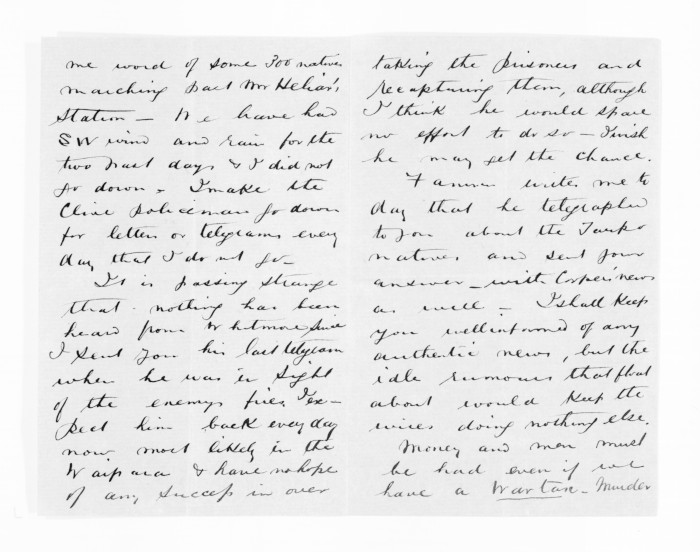 me word of some 300 natives
marching past Mr Helian's
Station – We have had
SW wind and rain for the
two past days & I did not
go down – I make the
Clive policeman go down
for letters or telegrams every
day that I do not go –
It is passing strange
that nothing has been
heard from Whitmore since
I sent you his last telegram
when he was in sight
of the enemys fires, I ex-
pect him back every day
now most likely in the
Waipaia & have no hope
of any success in over
taking the prisoners and
recapturing them, although
I think he would spare
no effort to do so – I wish
he may get the chance.
Fannin writes me to
day that he telegraphed
to you about the Taupo
natives and sent your
answer – with Corper's news
as well – I shall keep
you well informed of any
authentic news, but the
idle rumours that float
about would keep the
wires doing nothing else.
Money and men must
be had even if we
have a War tax – Murder